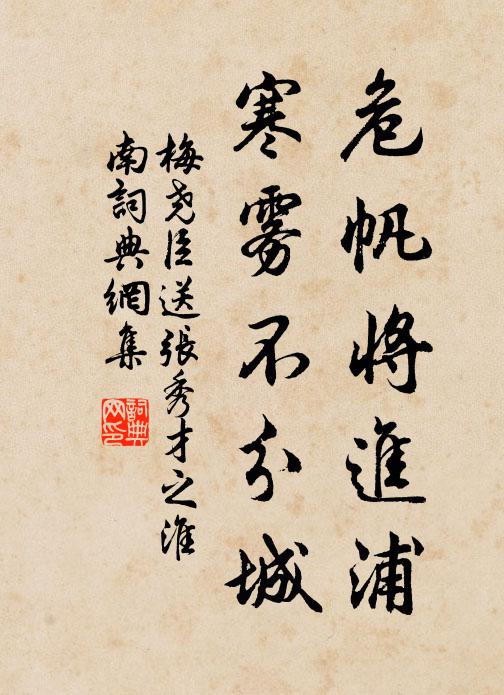 危帆将進浦
寒雾不分城
梅尧臣送張秀才之淮
南詞典網集
詞典
网印